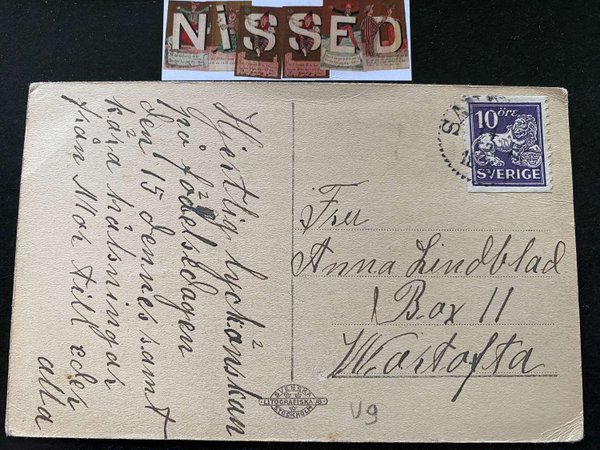 NiSSEO
Hjertlig lyckönskan
på födelsedagen
den 15 dennes samt
kära hälsningar
från Mor till eder
alla
10 ÖRE
SVERIGE
Fru
Anna Lindblad
Box 11
Wartofta
SVENSKA
LITOGRAFISKA AB
STOCKHOLM
Vg